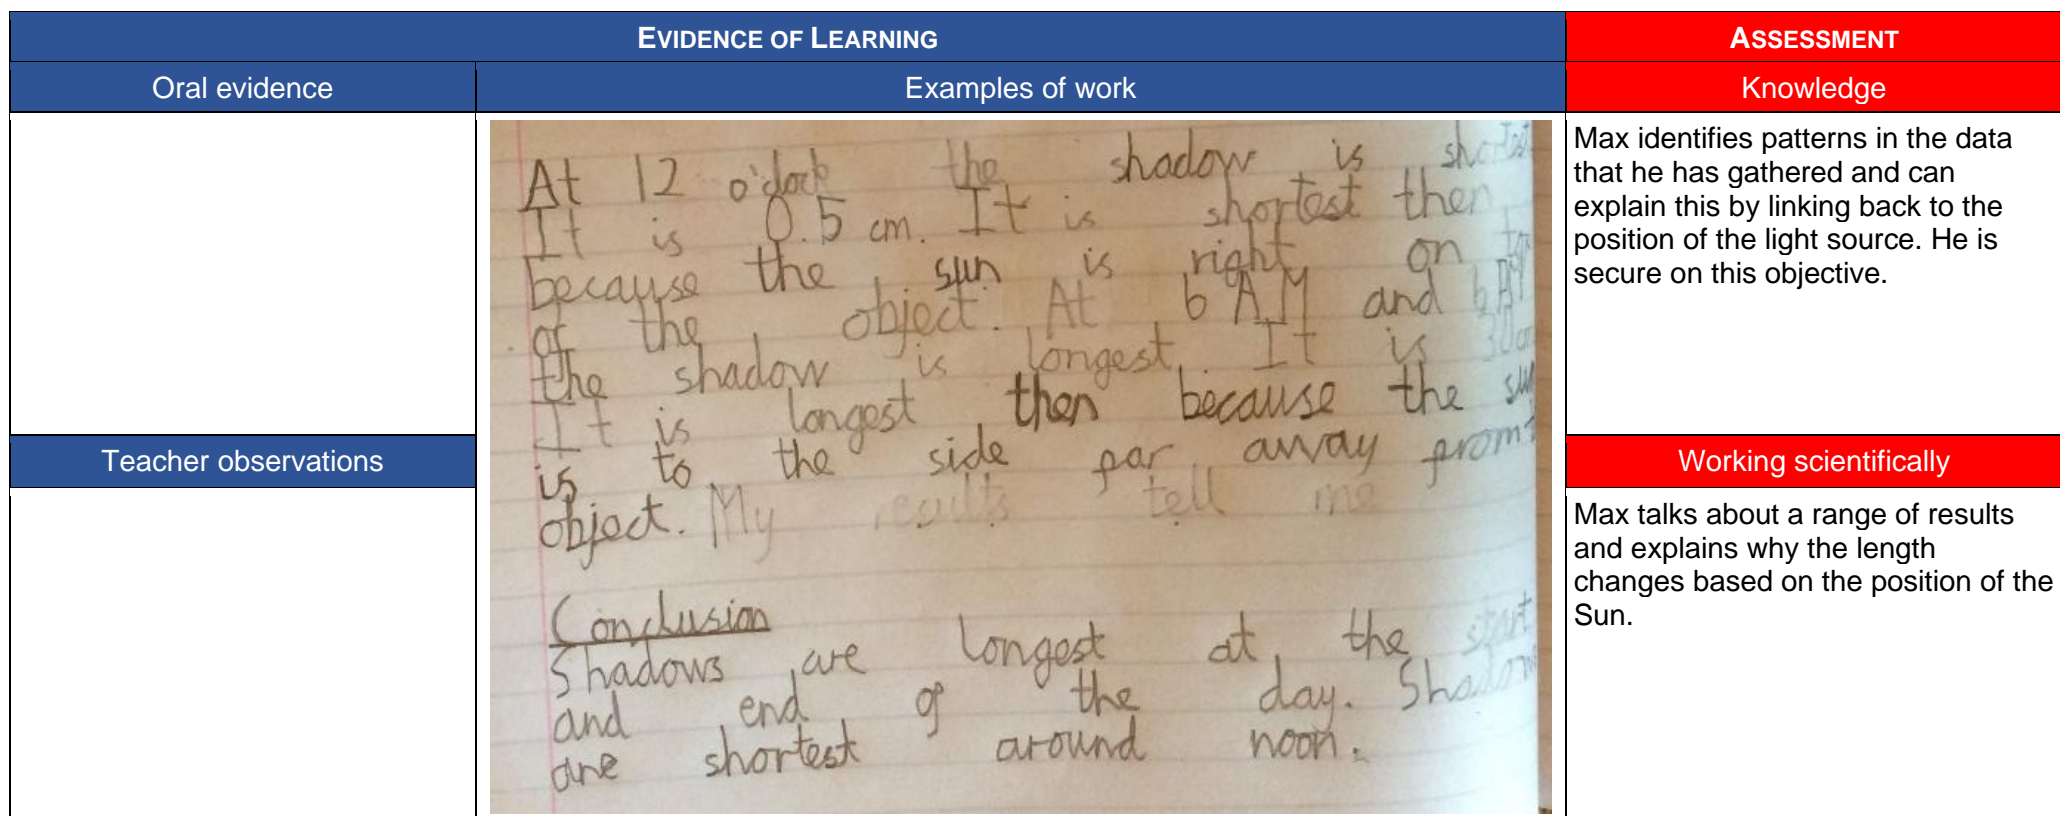 EVIDENCE OF LEARNING
ASSESSMENT
Oral evidence
Examples of work
Knowledge
At 12 o'clock the shadow is shortest
It is 0.5 cm. It is shortest then
because the sun is right on top
of the object. At 6 A.M and
the shadow is longest. It is 30cm
It is longest then because the sun
is to the side far away from
object. My results tell me
Conclusion
Shadows are longest at the start
and end of the day. Shadows
are shortest around noon.
Max identifies patterns in the data
that he has gathered and can
explain this by linking back to the
position of the light source. He is
secure on this objective.
Teacher observations
Working scientifically
Max talks about a range of results
and explains why the length
changes based on the position of the
Sun.